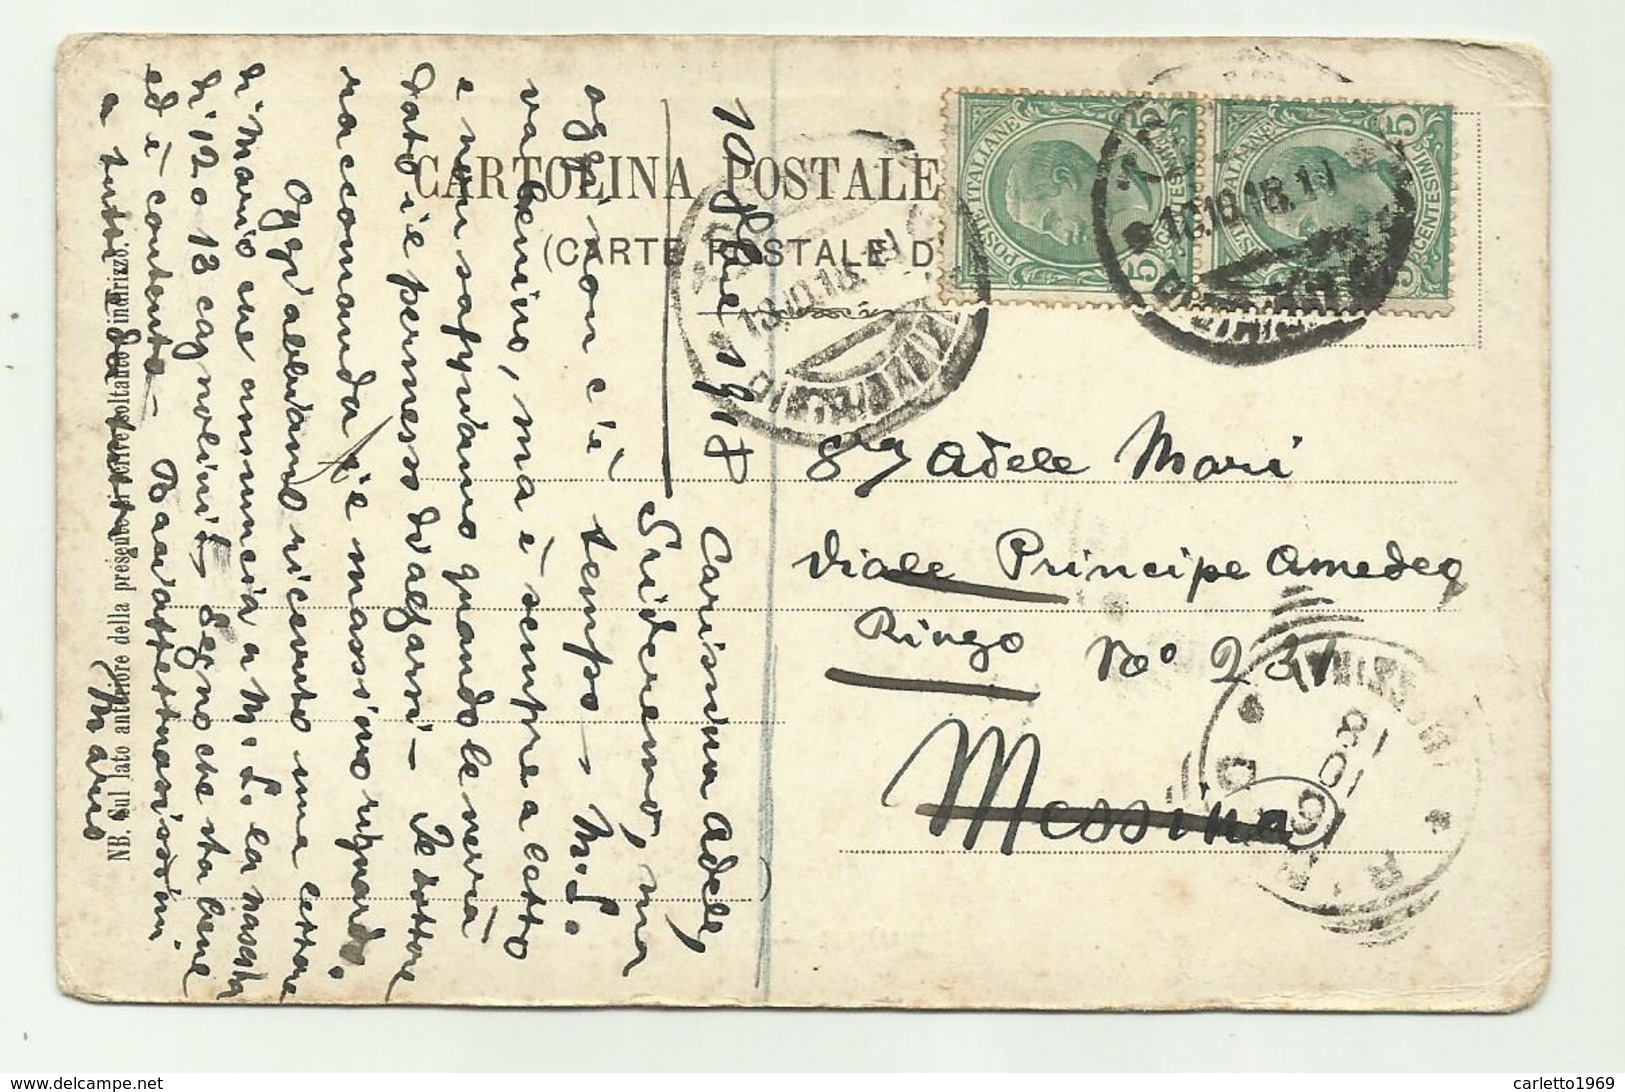 CARTOLINA POSTALE
(CARTE POSTALE D
POSTE ITALIANE
CENTESIMI 5
5 CENTESIMI 5
16.10.18.11
MESSINA
18 10
Adele Mari
Viale Principe Amedeo
Ringo No 231
Messina
1918
Carissima Adele,
Scriveremo, ma
oggi non c'è tempo - M. L.
va benino, ma è sempre a letto
e non sappiamo quando le verrà
dato il permesso d'alzarsi - Il dottore
raccomanda il massimo riguardo.
Oggi abbiamo ricevuto una lettera
di Mario che annuncia a M. L. la nascita
di 12 o 13 cagnolini - Segno che sta bene
ed è contento - Baci affettuosissimi
a tutti
Mario
NB. Sul lato anteriore della presente si scrive soltanto l'indirizzo.
carletto1969